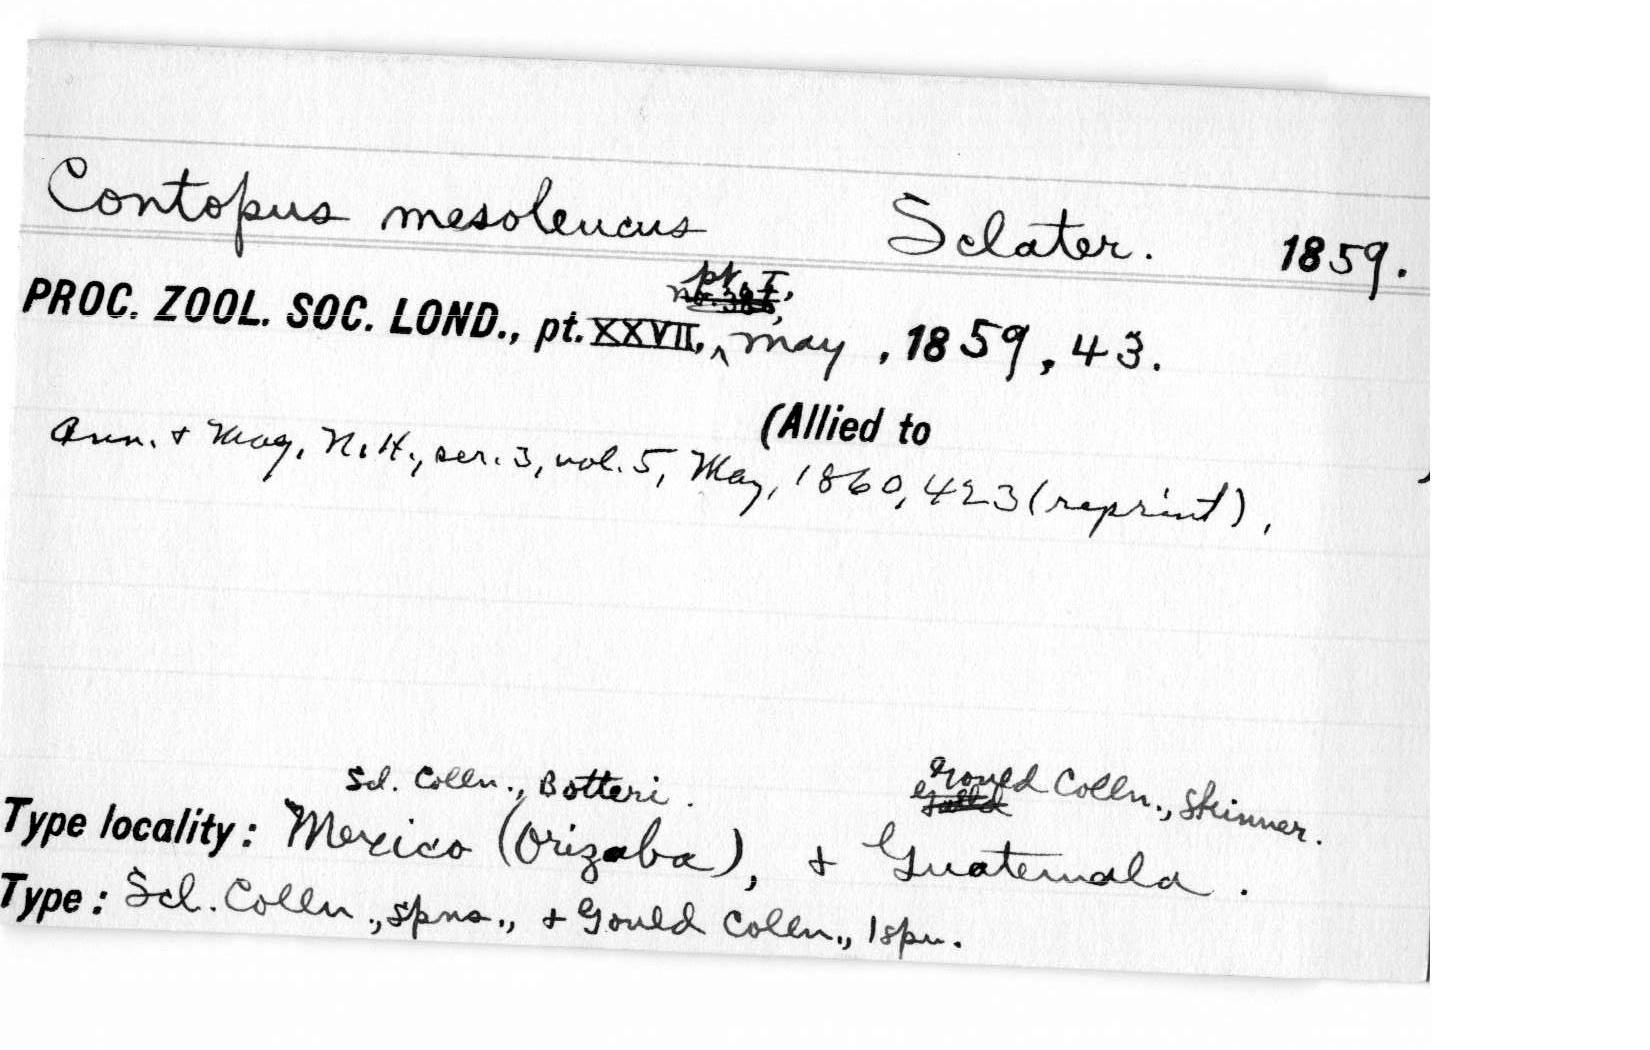 Contopus mesoleucus Sclater. 1859.
pt. I,
PROC. ZOOL. SOC. LOND., pt. XXVII, ^ May, 1859, 43.
(Allied to )
Ann. & Mag. N.H., ser. 3, vol. 5, May, 1860, 423 (reprint),
Scl. Colln., Botteri. Gould Colln., Skinner.
Type locality: Mexico (Orizaba), & Guatemala.
Type: Scl. Colln., spns., & Gould Colln., 1 spn.